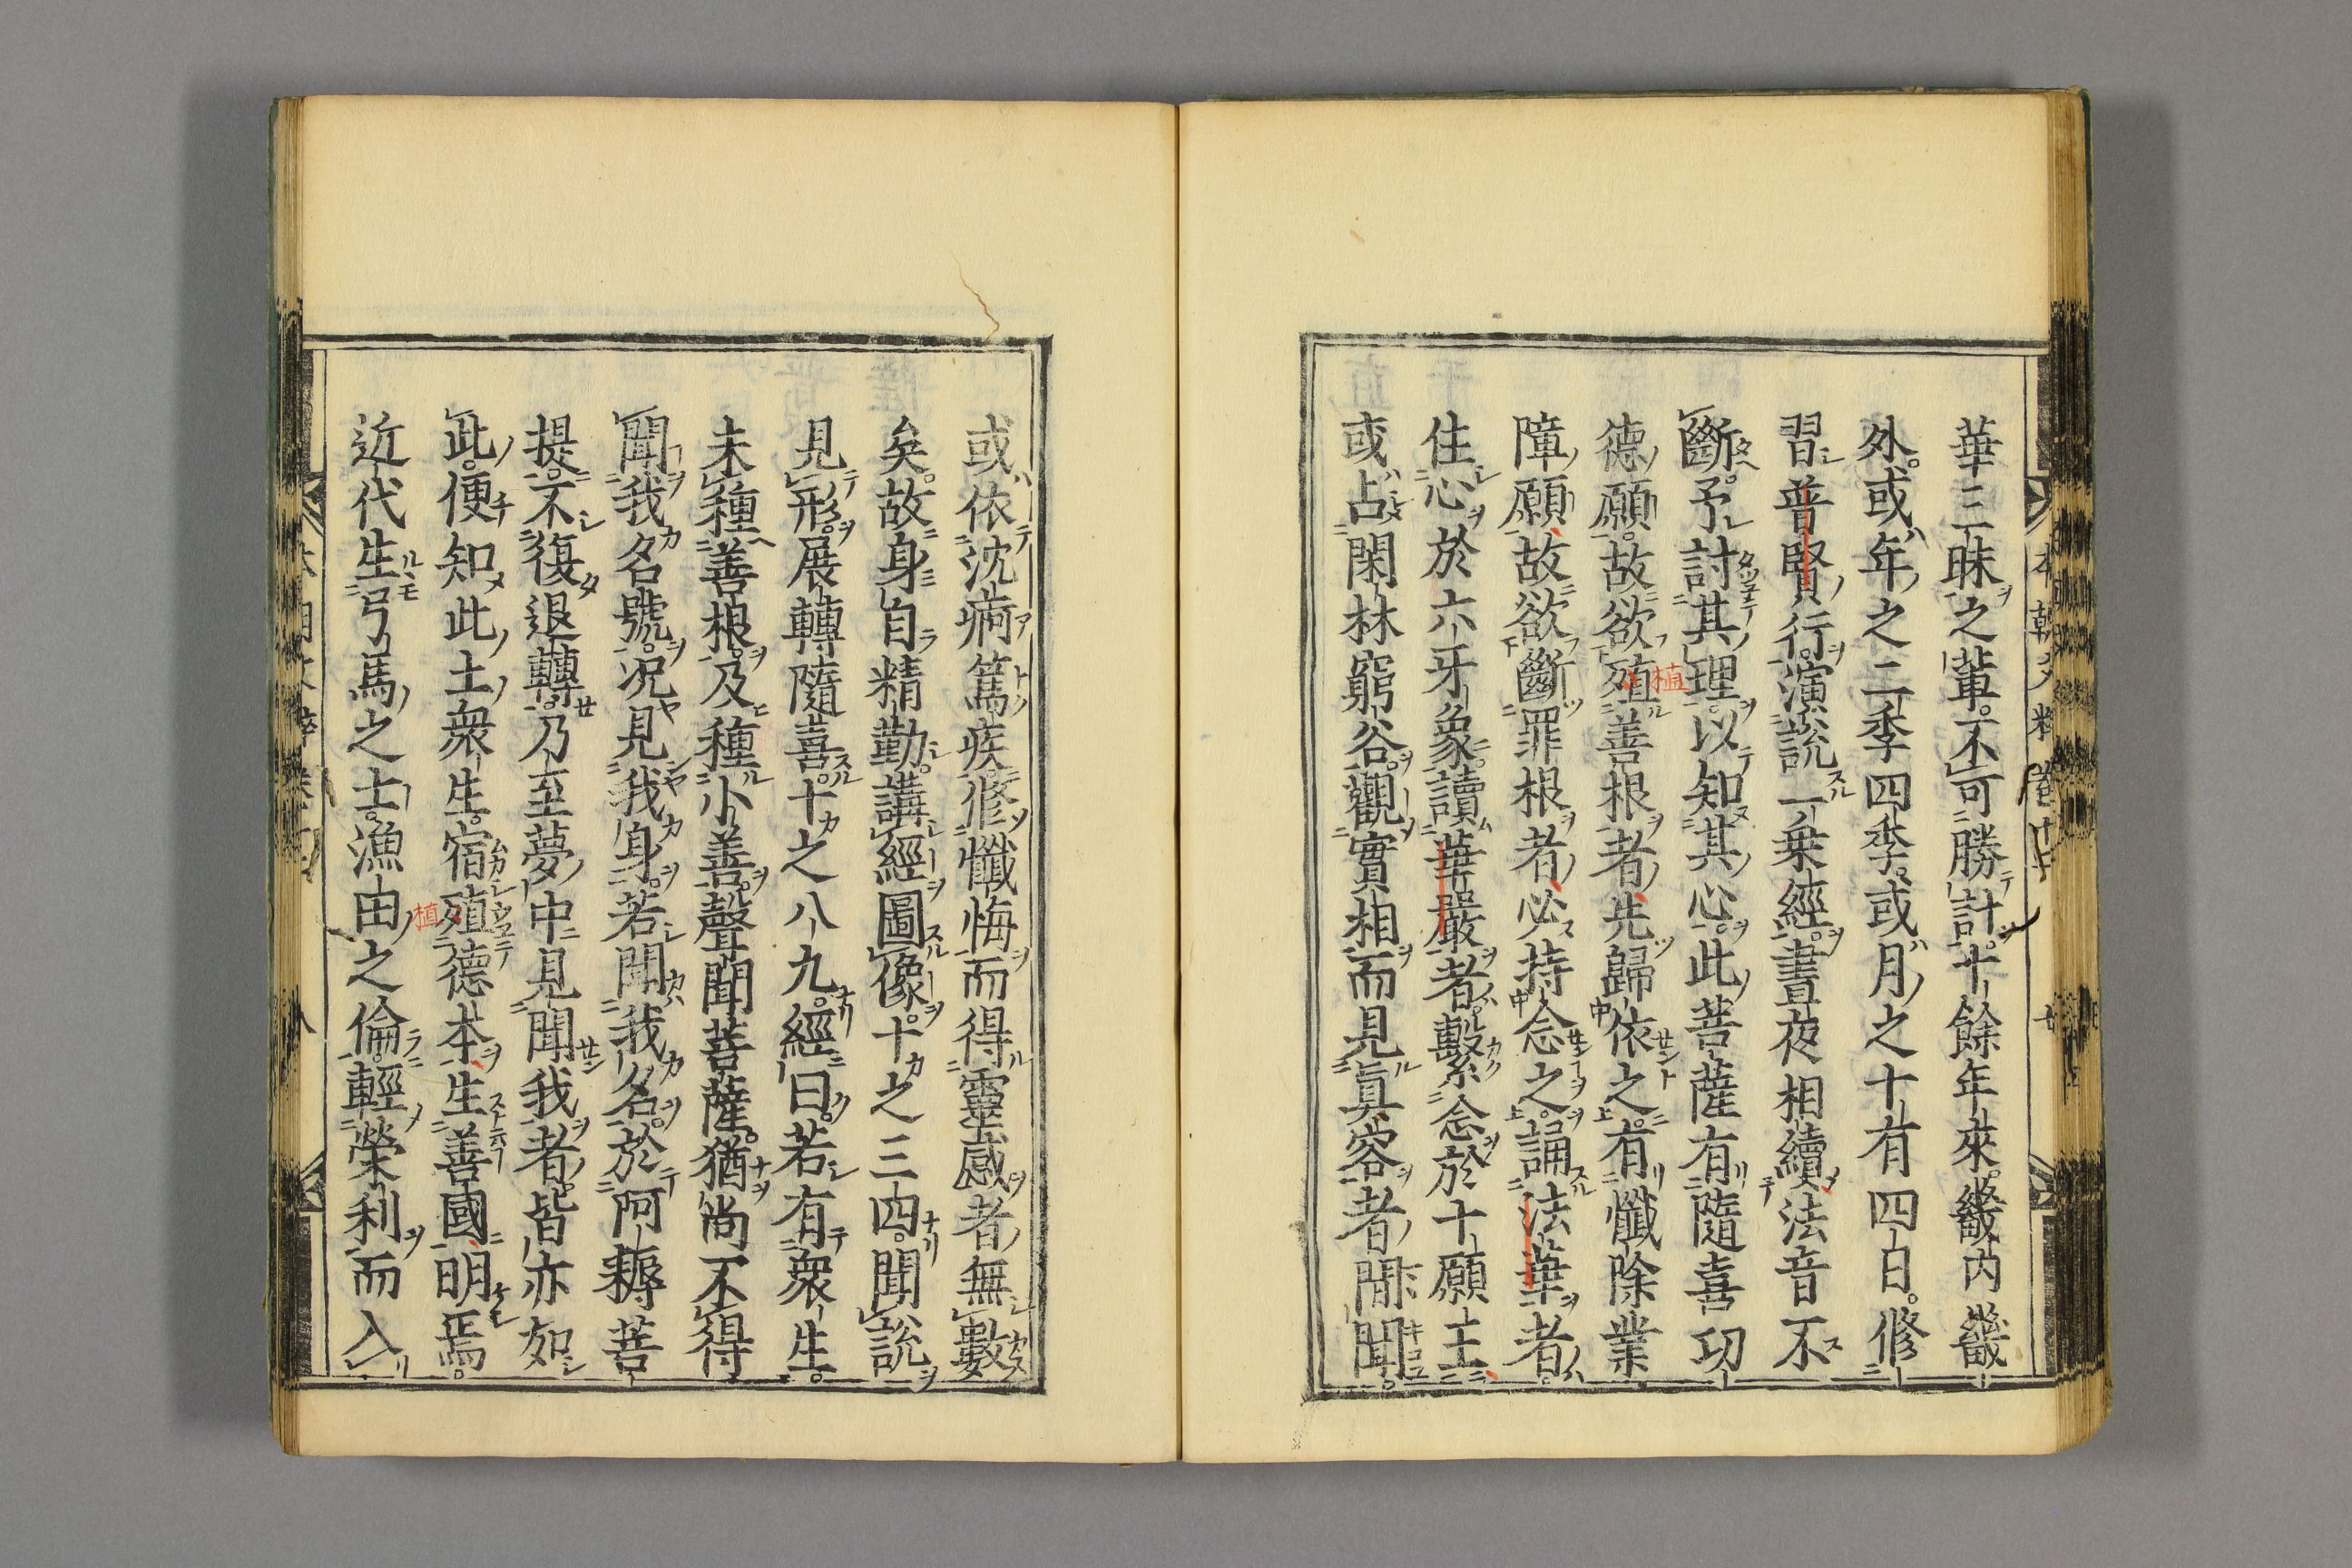 華三昧之輩。不可勝計。十餘年來。畿内畿
外。或年之二季四季。或月之十有四日。修
習普賢行。演說一乗經。晝夜相續法音不
斷。予討其理。以知其心。此菩薩有隨喜功
德願。故欲殖善根者。先歸依之。有懺除業
植
障願。故欲斷罪根者。必持念之。誦法華者。
住心於六牙象。讀華嚴者。繫念於十願王
或占閑林窮谷。觀實相而見眞容者。間聞。
或依沈痾篤疾。修懺悔而得靈感者。無數
矣。故身自精勤。講經圖像。十之三四。聞說
見形。展轉隨喜。十之八九。經曰。若有衆生。
未種善根。及種小善。聲聞菩薩。猶尚不得
聞我名號。況見我身。若聞我名。於阿耨菩
提。不復退轉。乃至夢中見聞我者。皆亦如
此。便知此土衆生。宿殖德本。生善國明焉。
植
近代生弓馬之士。漁由之倫。輕榮利而入
本朝文粹 卷